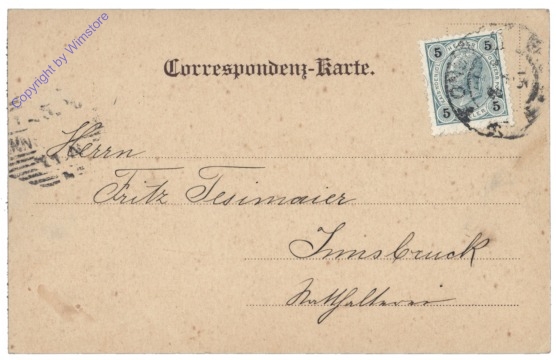 Copyright by Winstore
Correspondenz-Karte.
5 5
5 5
Herrn
Fritz Tesimaier
Innsbruck
Statthalterei